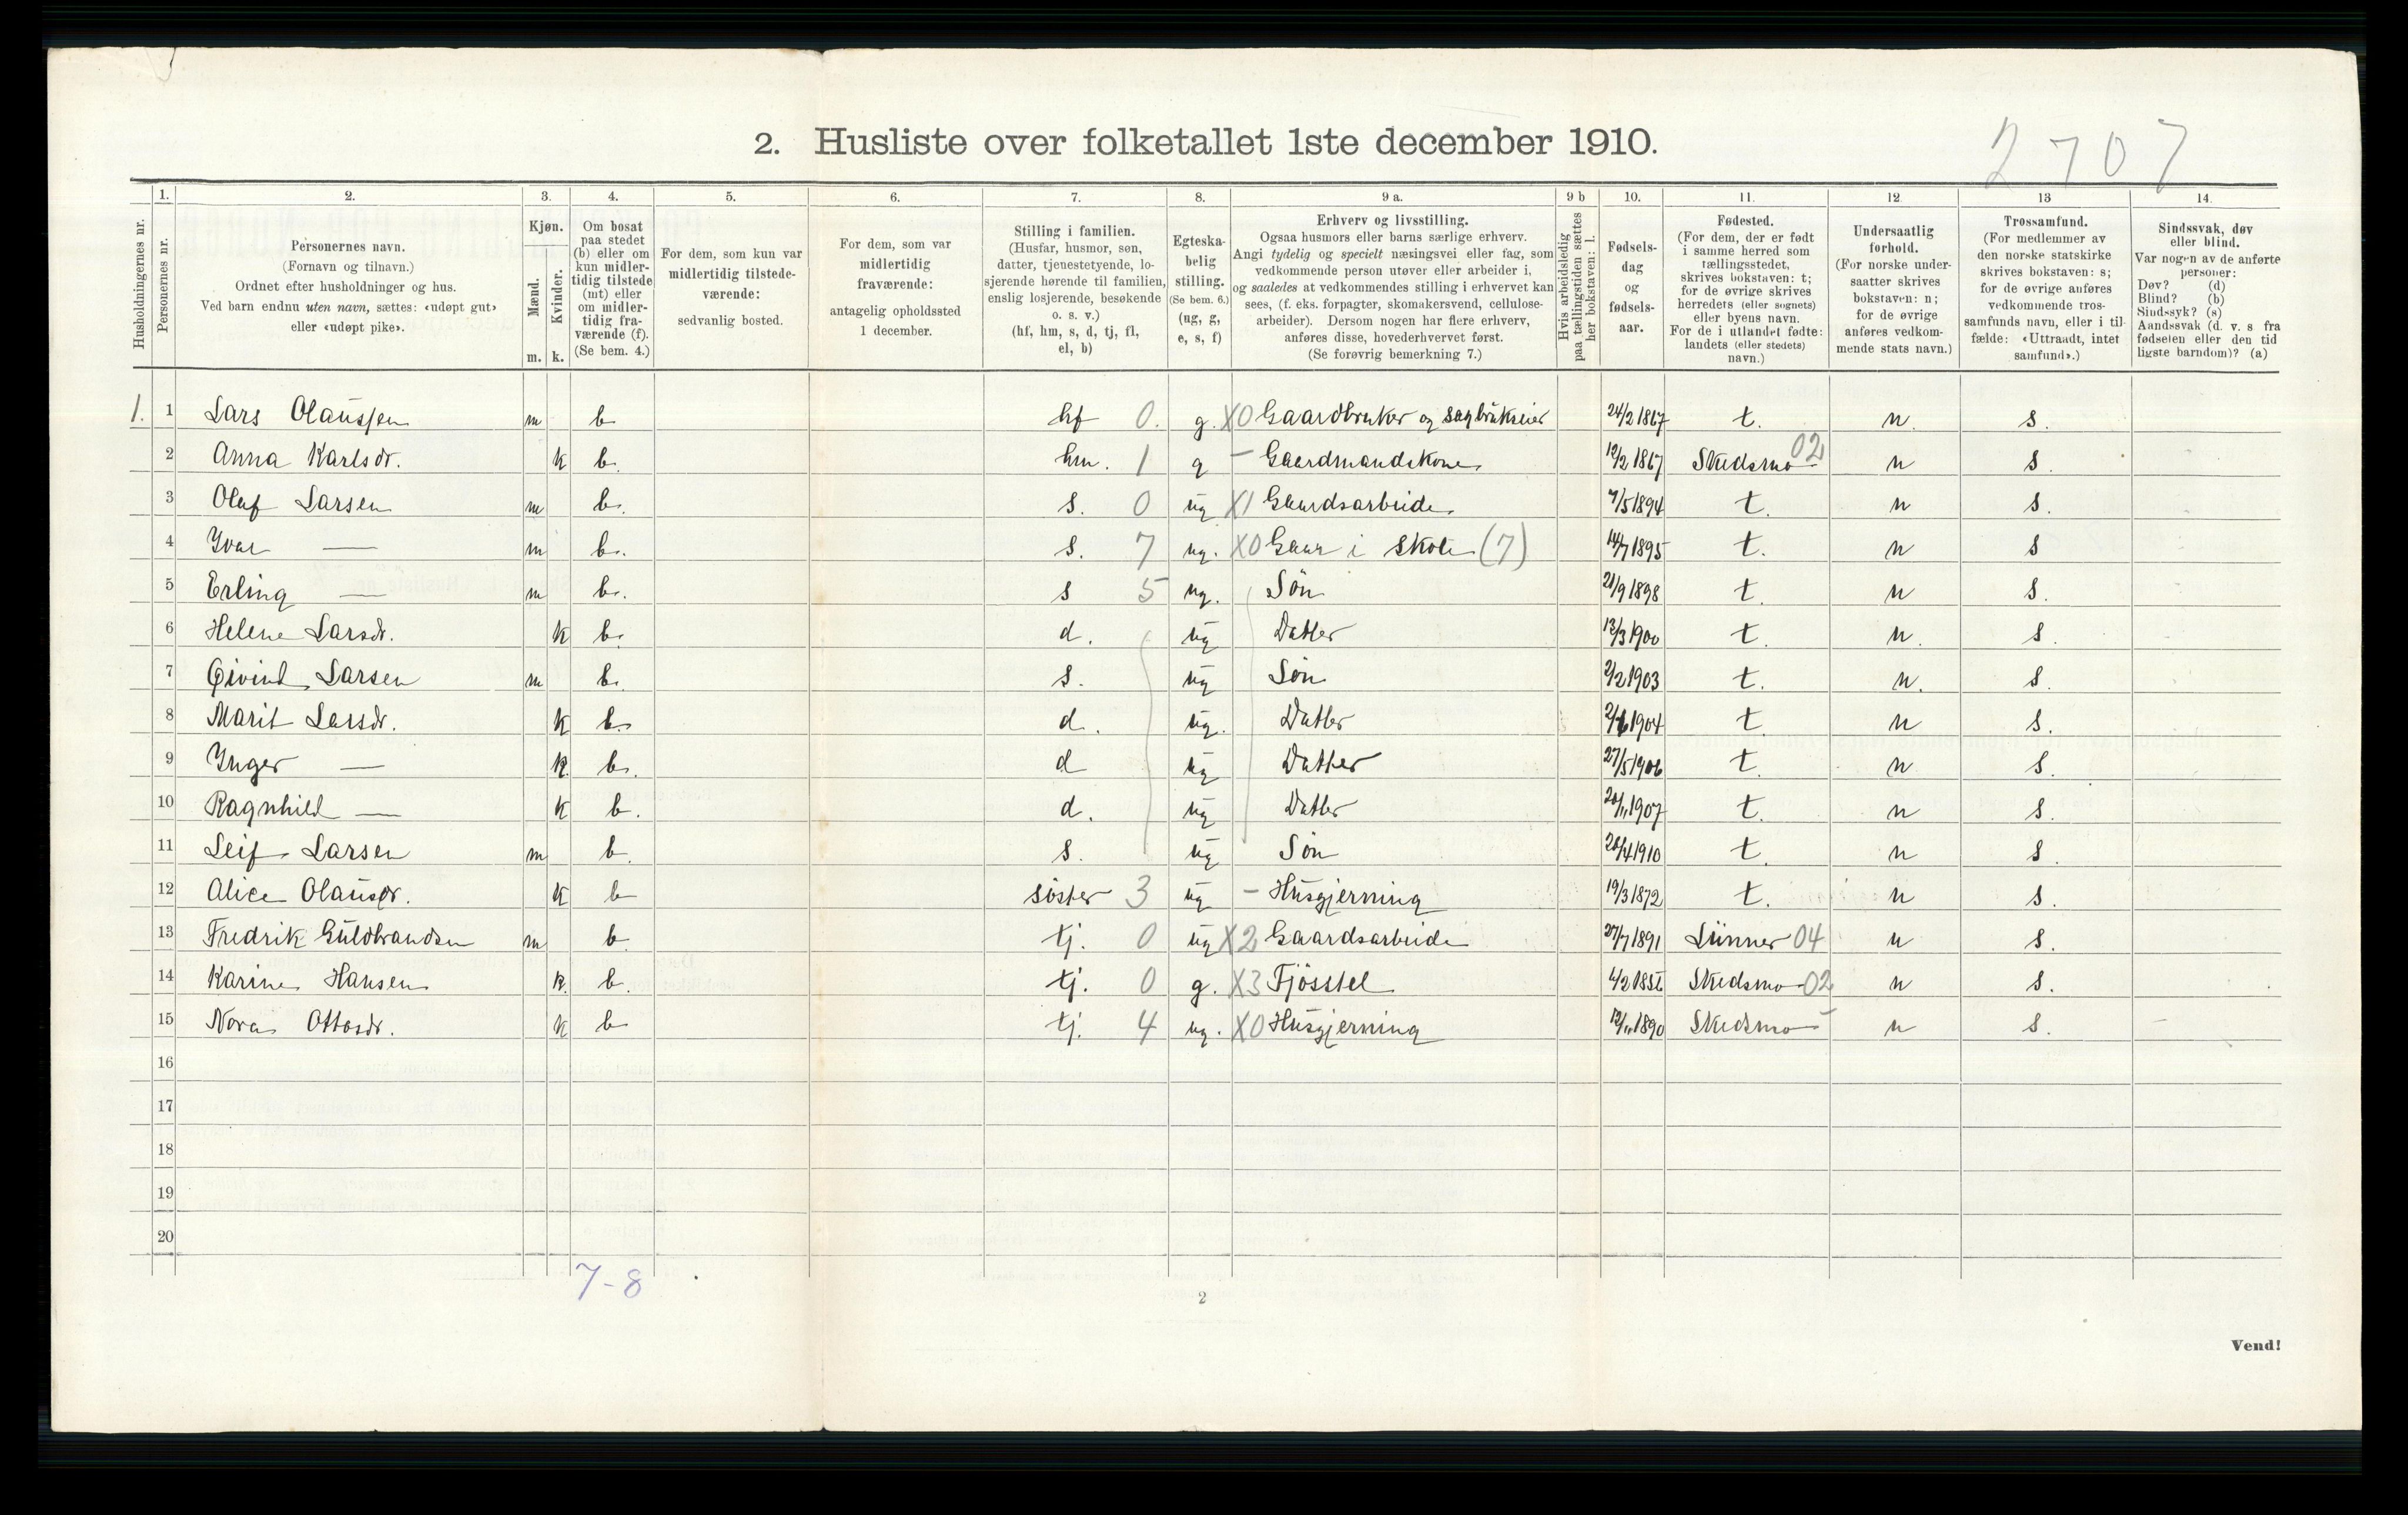 2. Husliste over folketallet 1ste december 1910.
2707
1. 2. 3. 4. 5. 6. 7. 8. 9 a. 9 b 10. 11. 12 13 14.
Husholdningernes nr.
Personernes nr.
Personernes navn.
(Fornavn og tilnavn.)
Ordnet efter husholdninger og hus.
Ved barn endnu uten navn, sættes: «udøpt gut»
eller «udøpt pike».
Kjøn.
Mænd.
Kvinder.
m. k.
Om bosat
paa stedet
(b) eller om
kun midler-
tidig tilstede
(mt) eller
om midler-
tidig fra-
værende (f).
(Se bem. 4.)
For dem, som kun var
midlertidig tilstede-
værende:
sedvanlig bosted.
For dem, som var
midlertidig
fraværende:
antagelig opholdssted
1 december.
Stilling i familien.
(Husfar, husmor, søn,
datter, tjenestetyende, lo-
sjerende hørende til familien,
enslig losjerende, besøkende
o. s. v.)
(hf, hm, s, d, tj, fl,
el, b)
Egteska-
belig
stilling.
(Se bem. 6.)
(ug, g,
e, s, f)
Erhverv og livsstilling.
Ogsaa husmors eller barns særlige erhverv.
Angi tydelig og specielt næringsvei eller fag, som
vedkommende person utøver eller arbeider i,
og saaledes at vedkommendes stilling i erhvervet kan
sees, (f. eks. forpagter, skomakersvend, cellulose-
arbeider). Dersom nogen har flere erhverv,
anføres disse, hovederhvervet først.
(Se forøvrig bemerkning 7.)
Hvis arbeidsledig
paa tællingstiden sættes
her bokstaven: l.
Fødsels-
dag
og
fødsels-
aar.
Fødested.
(For dem, der er født
i samme herred som
tællingsstedet,
skrives bokstaven: t;
for de øvrige skrives
herredets (eller sognets)
eller byens navn.
For de i utlandet fødte:
landets (eller stedets)
navn.)
Undersaatlig
forhold.
(For norske under-
saatter skrives
bokstaven: n;
for de øvrige
anføres vedkom-
mende stats navn.)
Trossamfund.
(For medlemmer av
den norske statskirke
skrives bokstaven: s;
for de øvrige anføres
vedkommende tros-
samfunds navn, eller i til-
fælde: «Uttraadt, intet
samfund».)
Sindssvak, døv
eller blind.
Var nogen av de anførte
personer:
Døv? (d)
Blind? (b)
Sindssyk? (s)
Aandssvak (d. v. s fra
fødselen eller den tid
ligste barndom)? (a)
1. 1 Lars Olaussen m b hf 0. g. X0 Gaardbruker og sagbrukseier 24/2 1867 t. n. s.
2 Anna Karlsdr. k b. hm. 1 g – Gaardmandskone 12/2 1867 Skedsmo 02 n s.
3 Oluf Larsen m b. s. 0 ug X1 Gaardsarbeide 7/5 1894 t. n s.
4 Ivar — m b. s. 7 ug. X0 Gaar i skole (7) 14/7 1895 t. n s
5 Erling — m b. s 5 ug. Sön 21/9 1898 t. n s.
6 Helene Larsdr. k b. d. ug Datter 13/3 1900 t. n. s.
7 Øivind Larsen m b. s. ug Sön 2/2 1903 t. n. s.
8 Marit Larsdr. k b. d. ug. Datter 1904 t. n s.
9 Inger — k b. d ug Datter 27/5 1906 t. n s.
10 Ragnhild — k b. d. ug Datter 20/11 1907 t. n s.
11 Leif Larsen m b. s. ug Sön 20/4 1910 t. n s.
12 Alice Olausdr. k b söster 3 ug – Husgjerning 19/3 1872 t. n s.
13 Fredrik Guldbrandsen m b. tj. 0 ug X2 Gaardsarbeide 27/7 1891 Lunner 04 n s.
14 Karine Hansen k b. tj. 0 g. X3 Fjösstel Skedsmo 02 n s.
15 Nora Ottosdr. k b tj. 4 ug. X0 Husgjerning 12/11 1890 Skedsmo – n s. –
16
17
18
19
20
7-8
2
Vend!